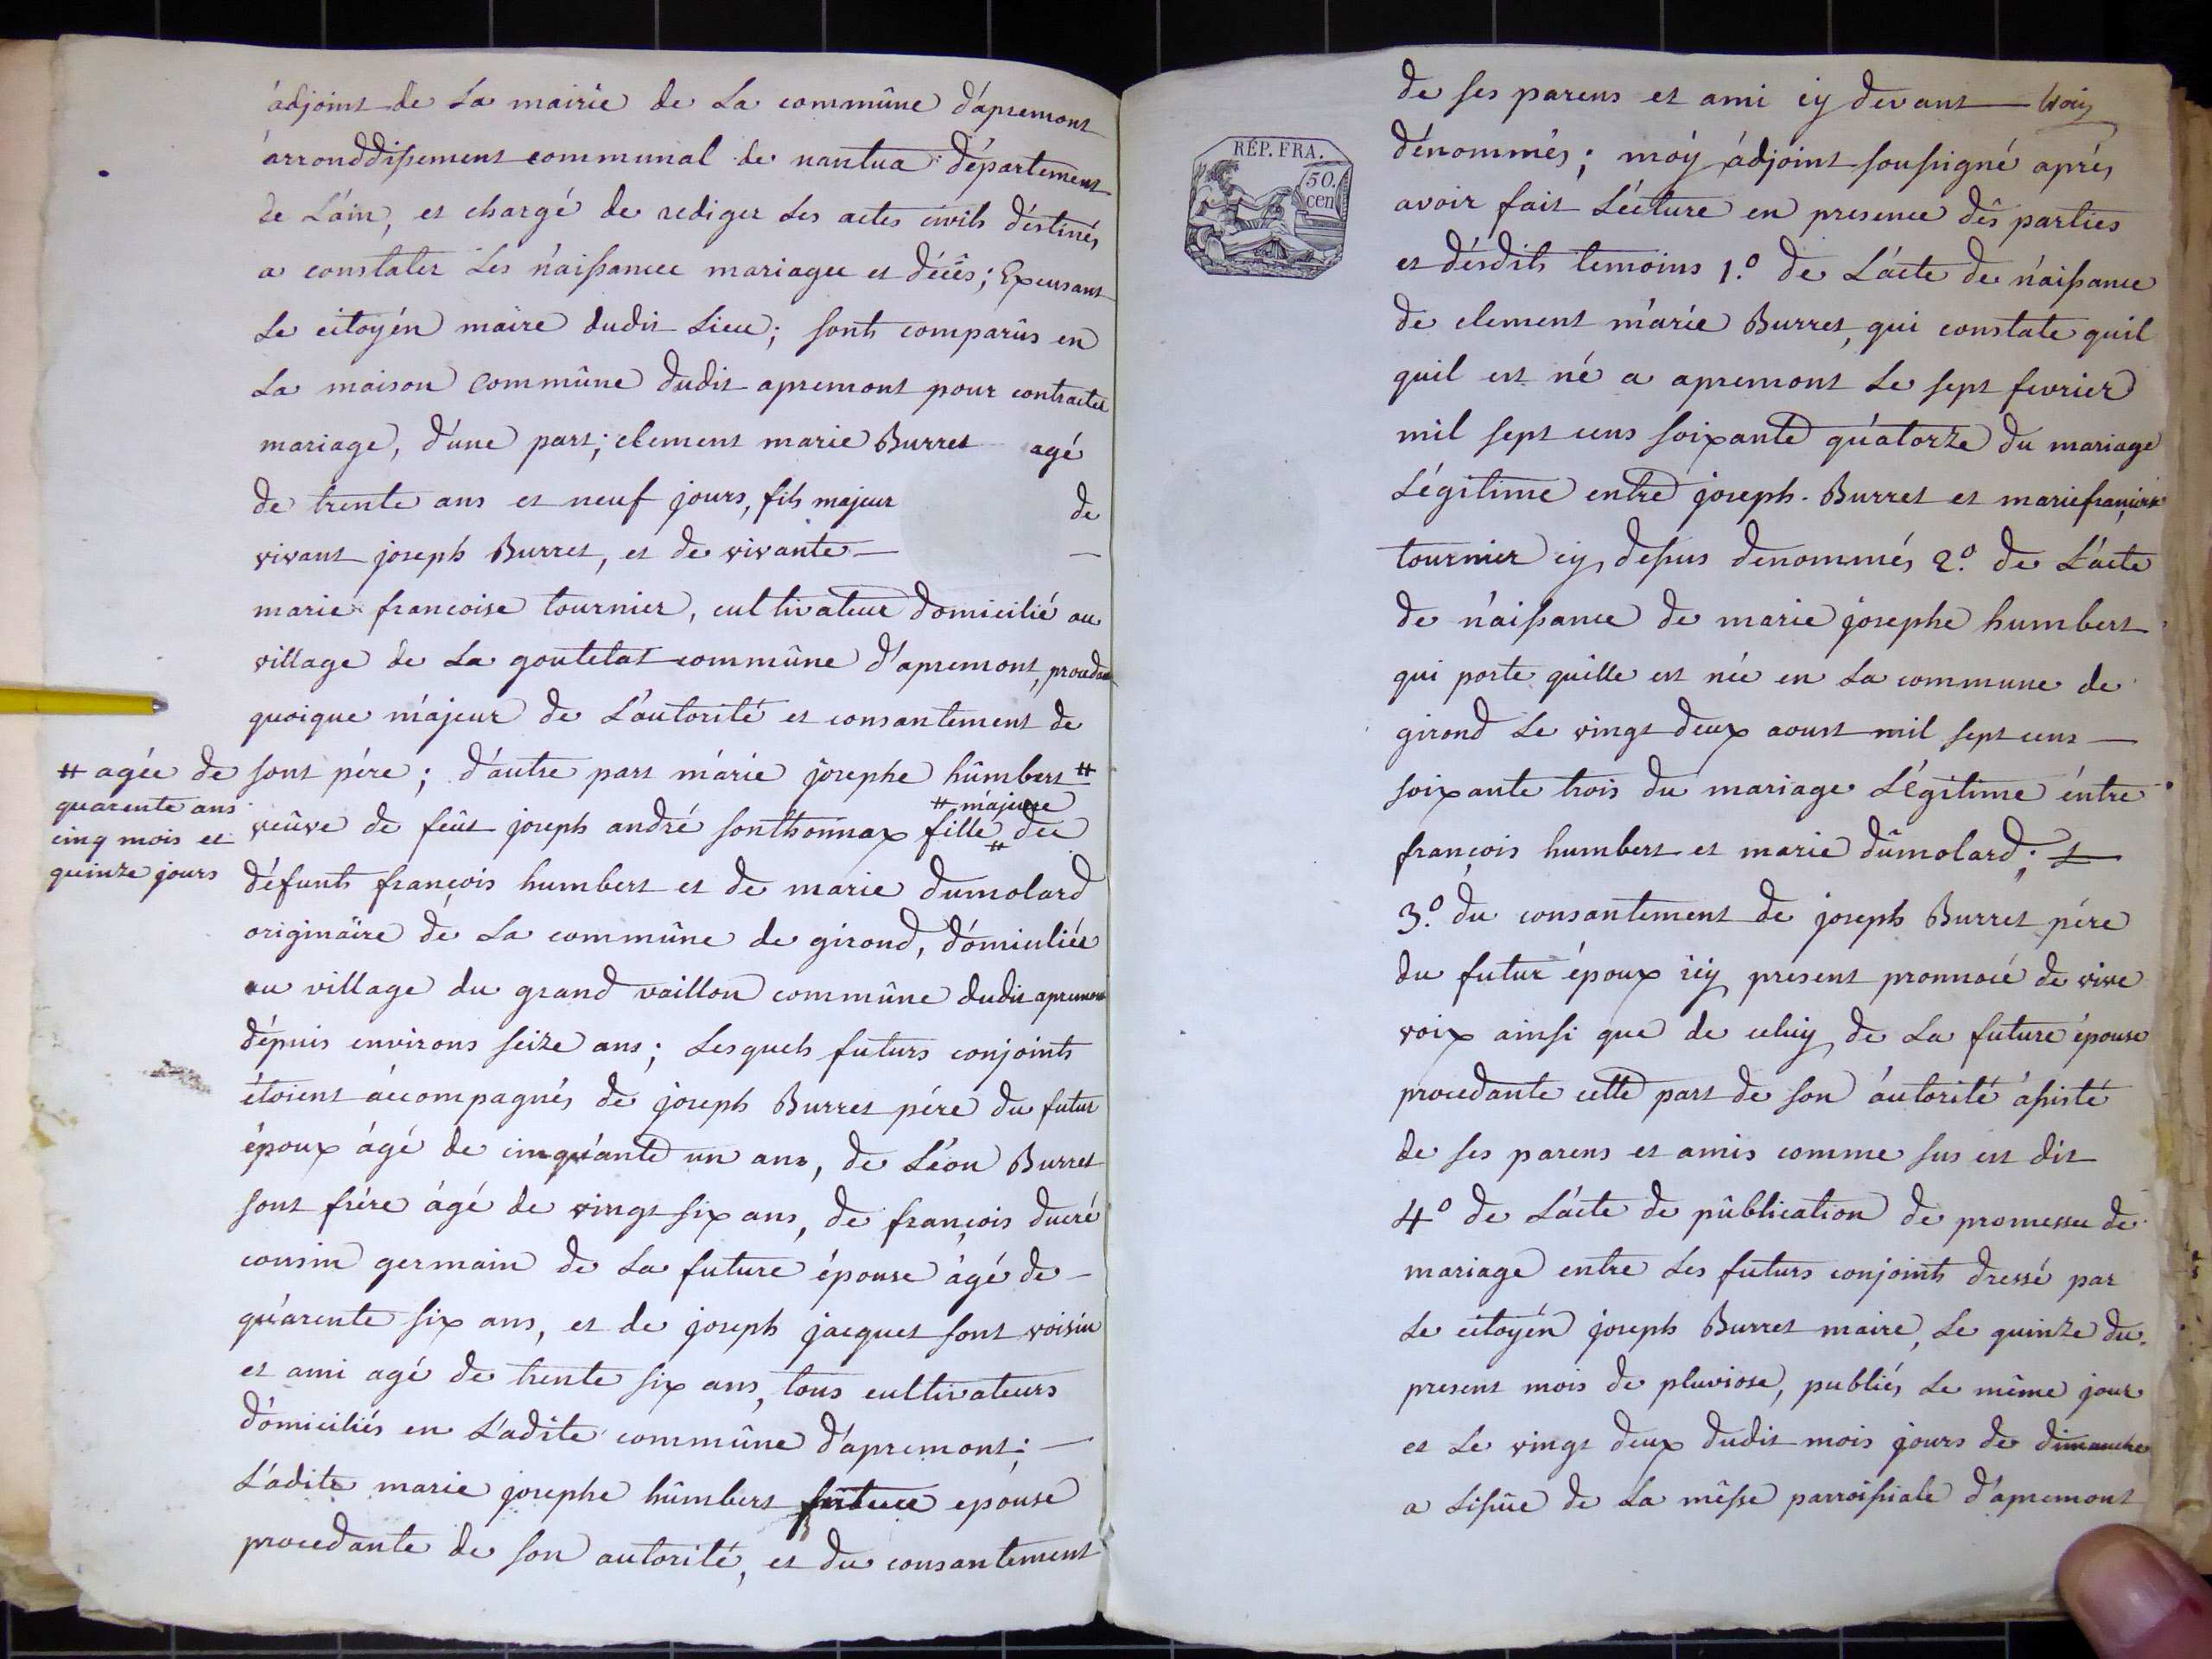 adjoint de La mairie de La commûne d'apremont
arronddissement communal de nantua département
de L'ain, et chargé de rediger Les actes civils déstinés
a constater Les naissance mariagee et décés; Excusant
Le citoyén maire dudit Lieu; sonts comparûs en
La maison Commûne dudit apremont pour contracter
mariage, d'une part; clement marie Burret agé
de trente ans et neuf jours, fils majeur de
vivant joseph Burret, et de vivante —
marie francoise tournier, cultivateur domicilié au
village de La goutelat commûne d'apremont, procedant
quoique majeur de L'autorité et consantement de
sont pére; d'autre part marie josephe hûmbert #
# agée de
quarente ans
cinq mois et
quinze jours
veûve de feût joseph andré sonthonnax fille # de
# majeure
défunts françois humbert et de marie dumolard
originaire de La commûne de girond, domiciliée
au village du grand vaillon commûne dudit apremont
dépuis environs seize ans; Lesquels futurs conjoints
étoient áccompagnés de joseph Burret pére du futur
époux ágé de cinquante un ans, de Léon Burret
sont frére ágé de vingt six ans, de françois ducré
cousin germain de La future épouse àgé de —
quarente six ans, et de joseph jacquet sont voisin
et ami agé de trente six ans, tous cultivateurs
domiciliés en L'adite commûne d'apremont; —
L'adite marie josephe hûmbert future epouse
procedante de son autorité, et du consantement
RÉP. FRA.
50.
cen
de ses parens et ami cy devant —
dénommés; móy ádjoint soussigné aprés
avoir fait Lécture en presence dês parties
et désdits temoins 1.º de L'acte de naissance
de clement marie Burret, qui constate quil
quil est né a apremont Le sept fevrier
mil sept cens soixante quatorze du mariage
Légitime entre joseph Burret et marie françoise
tournier cy dessus denommés 2.º de L'acte
de naissance de marie josephe humbert
qui porte quille est née en La commune de
girond Le vingt deux aoust mil sept cens —
soixante trois du mariage Légitime éntre
françois humbert et marie dûmolard;
3.º du consantement de joseph Burret pére
du futur époux icy present pronnocé de vive
voix ainsi que de celuiy de La future épouse
procedante cette part de son áutorité ássisté
de ses parens et amis comme sus est dit
4º de L'acte de pûblication de promesse de
mariage entre Les futurs conjoints dressé par
Le citoyén joseph Burret maire, Le quinze du
present mois de pluviose, publiés Le même jour
et Le vingt deux dudit mois jours de dimanche
a Lissûe de La mêsse parroissiale d'apremont